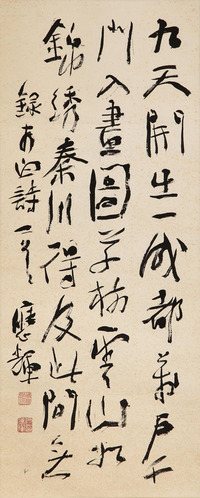 九天開出一成都萬戶千
門入畫圖草樹雲山如
錦繡秦川得及此間無
錄李白詩一首 應輝